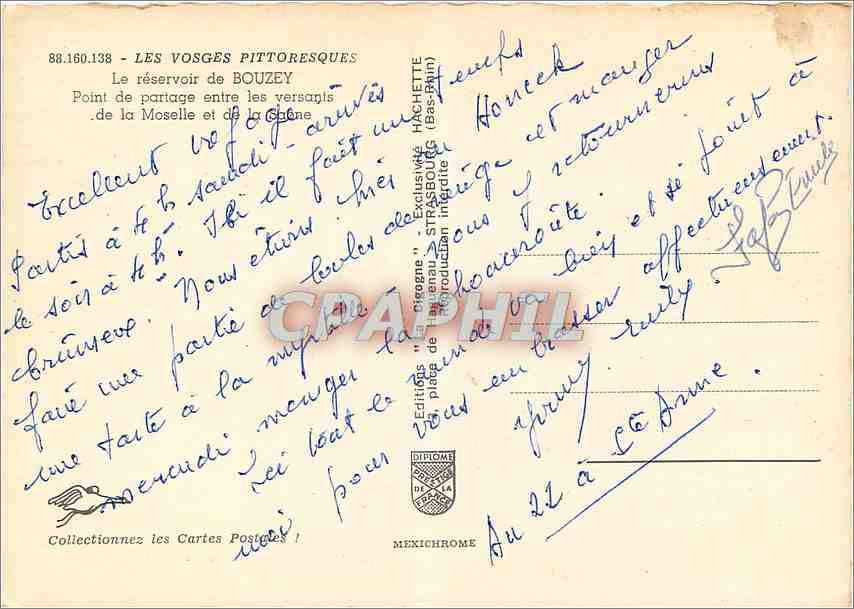 88.160.138 - LES VOSGES PITTORESQUES
Le réservoir de BOUZEY
Point de partage entre les versants
de la Moselle et de la Saône
Excellent voyage
Partis à 4 h samedi - arrivés
le soir à 4 h. Ici il fait un temps
brumeux. Nous étions hier au Honeck
faire une partie de boules de neige et manger
une tarte à la myrtille - nous y retournerons
mercredi manger la choucroute.
Ici tout le monde va bien et se joint à
moi pour vous embrasser affectueusement.
Emile
Au 22 à Ste Anne.
Editions "La Cigogne" - Exclusivité HACHETTE
place de Haguenau STRASBOURG (Bas-Rhin)
Reproduction interdite
DIPLOME
PRESTIGE
DE LA
FRANCE
MEXICHROME
Collectionnez les Cartes Postales !
CPAPHIL